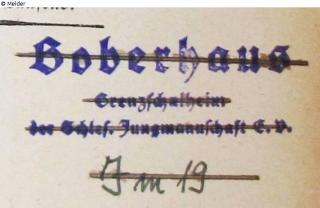 © Melder
Boberhaus
Grenzschulheim
der Schles. Jungmannschaft E. V.
J m 19